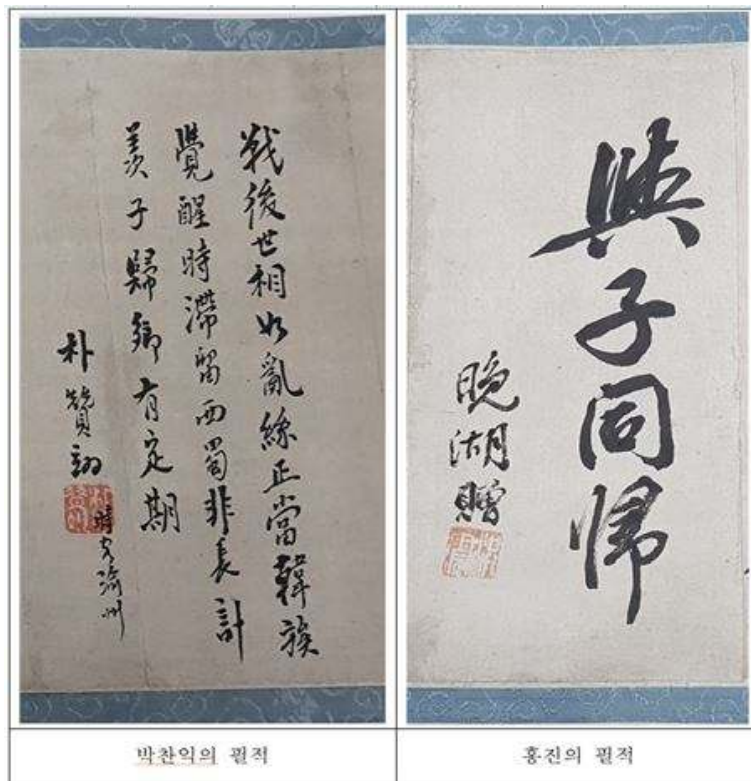 戰後世相如亂絲正當韓族
覺醒時滯留西蜀非長計
羨子歸鄉有定期
朴贊翊
時客渝州
與子同歸
晚湖贈
박찬익의 필적
홍진의 필적